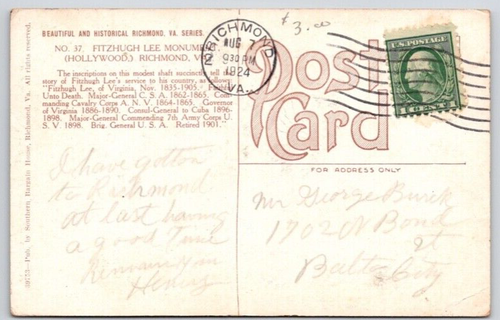 BEAUTIFUL AND HISTORICAL RICHMOND, VA. SERIES.
NO. 37. FITZHUGH LEE MONUME
(HOLLYWOOD,) RICHMOND, V
The inscriptions on this modest shaft succinctly tell
story of Fitzhugh Lee's service to his country, as follows:
"Fitzhugh Lee, of Virginia, Nov. 1835-1905.
Unto Death. Major-General C. S. A. 1862-1865. Com-
manding Cavalry Corps A. N. V. 1864-1865. Governor
of Virginia 1886-1890. Consul-General to Cuba 1896-
1898. Major-General Commanding 7th Army Corps U.
S. V. 1898. Brig. General U. S. A. Retired 1901."
Pub. by Southern Bargain House, Richmond, Va. All rights reserved.
RICHMOND
AUG
930 PM
1924
VA.
$3.00
U.S. POSTAGE
Post
Card
FOR ADDRESS ONLY
I have gotten
to Richmond
at last having
a good time
Henry
Mr George
1702 N Bond
St
Balto City